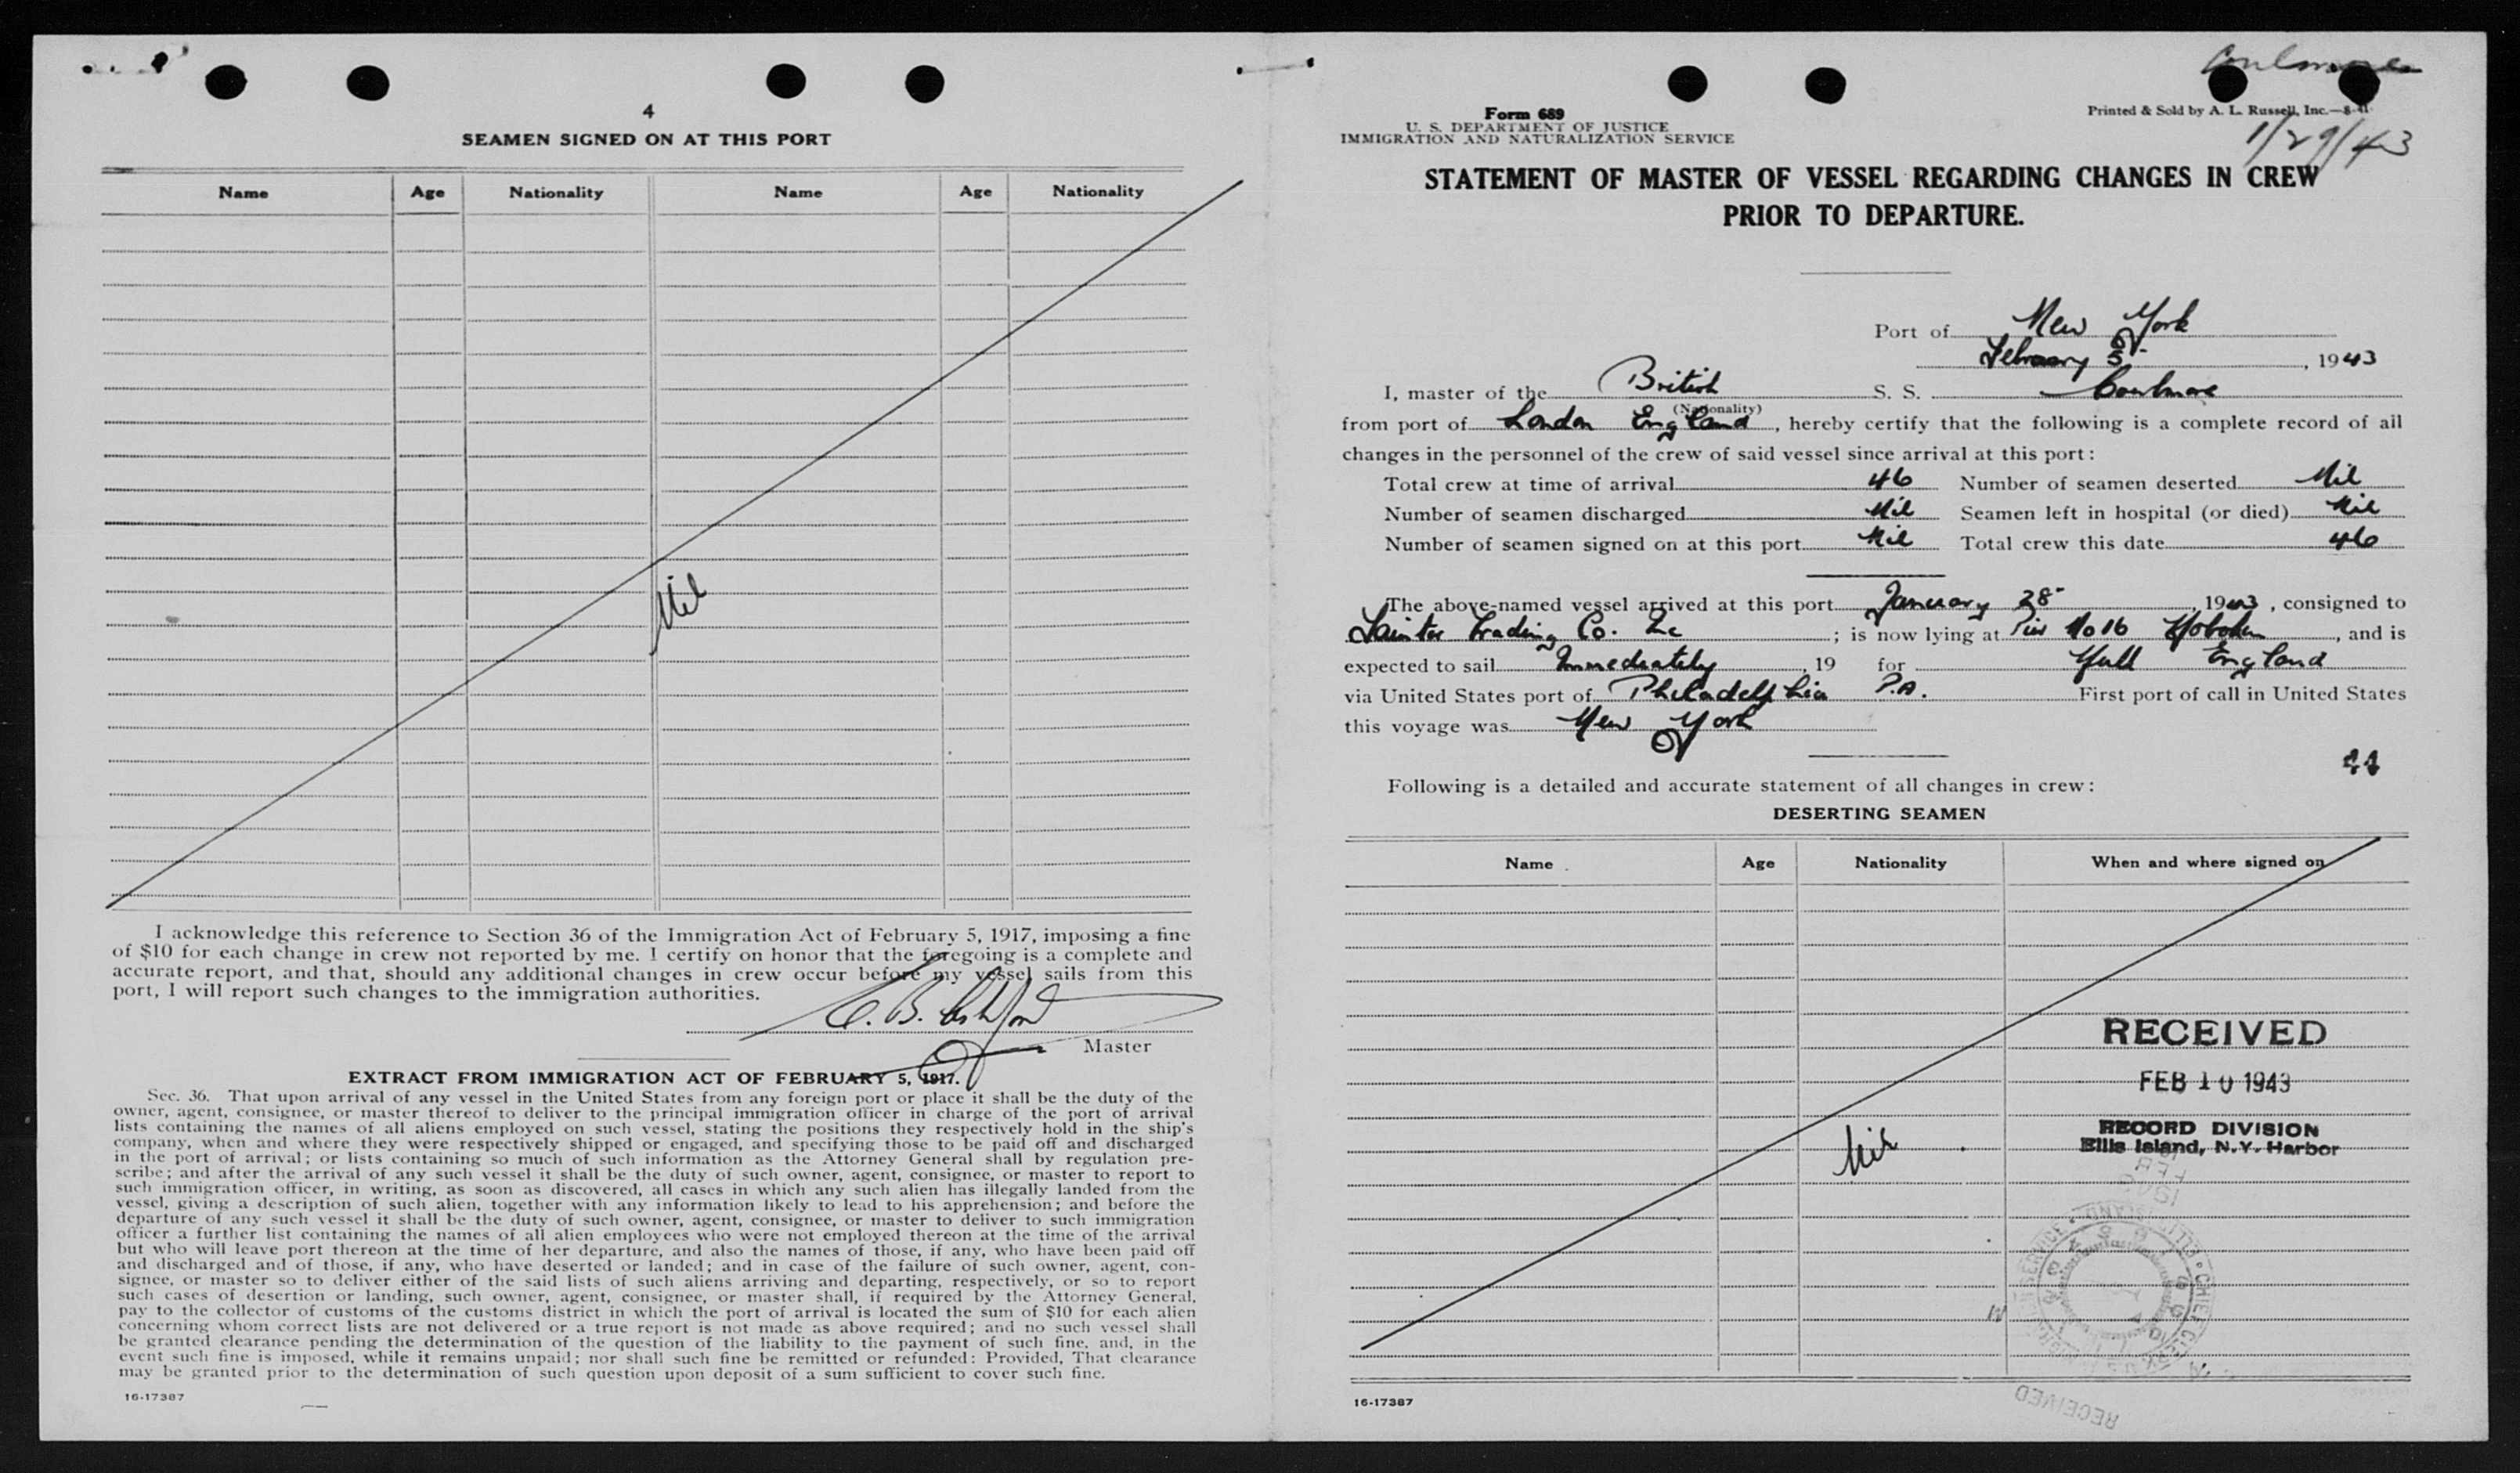 4
SEAMEN SIGNED ON AT THIS PORT
Name Age Nationality Name Age Nationality
Nil
I acknowledge this reference to Section 36 of the Immigration Act of February 5, 1917, imposing a fine
of $10 for each change in crew not reported by me. I certify on honor that the foregoing is a complete and
accurate report, and that, should any additional changes in crew occur before my vessel sails from this
port, I will report such changes to the immigration authorities.
C. B.
Master
EXTRACT FROM IMMIGRATION ACT OF FEBRUARY 5, 1917.
Sec. 36. That upon arrival of any vessel in the United States from any foreign port or place it shall be the duty of the
owner, agent, consignee, or master thereof to deliver to the principal immigration officer in charge of the port of arrival
lists containing the names of all aliens employed on such vessel, stating the positions they respectively hold in the ship's
company, when and where they were respectively shipped or engaged, and specifying those to be paid off and discharged
in the port of arrival; or lists containing so much of such information as the Attorney General shall by regulation pre-
scribe; and after the arrival of any such vessel it shall be the duty of such owner, agent, consignee, or master to report to
such immigration officer, in writing, as soon as discovered, all cases in which any such alien has illegally landed from the
vessel, giving a description of such alien, together with any information likely to lead to his apprehension; and before the
departure of any such vessel it shall be the duty of such owner, agent, consignee, or master to deliver to such immigration
officer a further list containing the names of all alien employees who were not employed thereon at the time of the arrival
but who will leave port thereon at the time of her departure, and also the names of those, if any, who have been paid off
and discharged and of those, if any, who have deserted or landed; and in case of the failure of such owner, agent, con-
signee, or master so to deliver either of the said lists of such aliens arriving and departing, respectively, or so to report
such cases of desertion or landing, such owner, agent, consignee, or master shall, if required by the Attorney General,
pay to the collector of customs of the customs district in which the port of arrival is located the sum of $10 for each alien
concerning whom correct lists are not delivered or a true report is not made as above required; and no such vessel shall
be granted clearance pending the determination of the question of the liability to the payment of such fine, and, in the
event such fine is imposed, while it remains unpaid; nor shall such fine be remitted or refunded: Provided, That clearance
may be granted prior to the determination of such question upon deposit of a sum sufficient to cover such fine.
16-17387
Coulmore
Form 689
Printed & Sold by A. L. Russell, Inc.—8-41
U. S. DEPARTMENT OF JUSTICE
IMMIGRATION AND NATURALIZATION SERVICE
1/29/43
STATEMENT OF MASTER OF VESSEL REGARDING CHANGES IN CREW
PRIOR TO DEPARTURE.
Port of New York
February 5, 1943
I, master of the British S. S. Coulmore
(Nationality)
from port of London England, hereby certify that the following is a complete record of all
changes in the personnel of the crew of said vessel since arrival at this port:
Total crew at time of arrival 46 Number of seamen deserted Nil
Number of seamen discharged Nil Seamen left in hospital (or died) Nil
Number of seamen signed on at this port Nil Total crew this date 46
The above-named vessel arrived at this port January 28, 1943, consigned to
Trading Co. Inc; is now lying at Pier No 16 Hoboken, and is
expected to sail Immediately, 19 for Hull England
via United States port of Philadelphia P.A. First port of call in United States
this voyage was New York
Following is a detailed and accurate statement of all changes in crew:
DESERTING SEAMEN
Name Age Nationality When and where signed on
Nil
RECEIVED
FEB 10 1943
RECORD DIVISION
Ellis Island, N.Y. Harbor
RECEIVED
16-17387